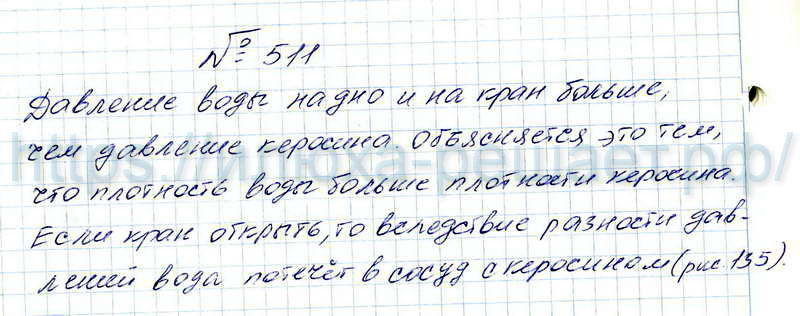 № 511
Давление воды на дно и на кран больше,
чем давление керосина. Объясняется это тем,
что плотность воды больше плотности керосина.
Если кран открыть, то вследствие разности дав-
лений вода потечёт в сосуд с керосином (рис. 135).